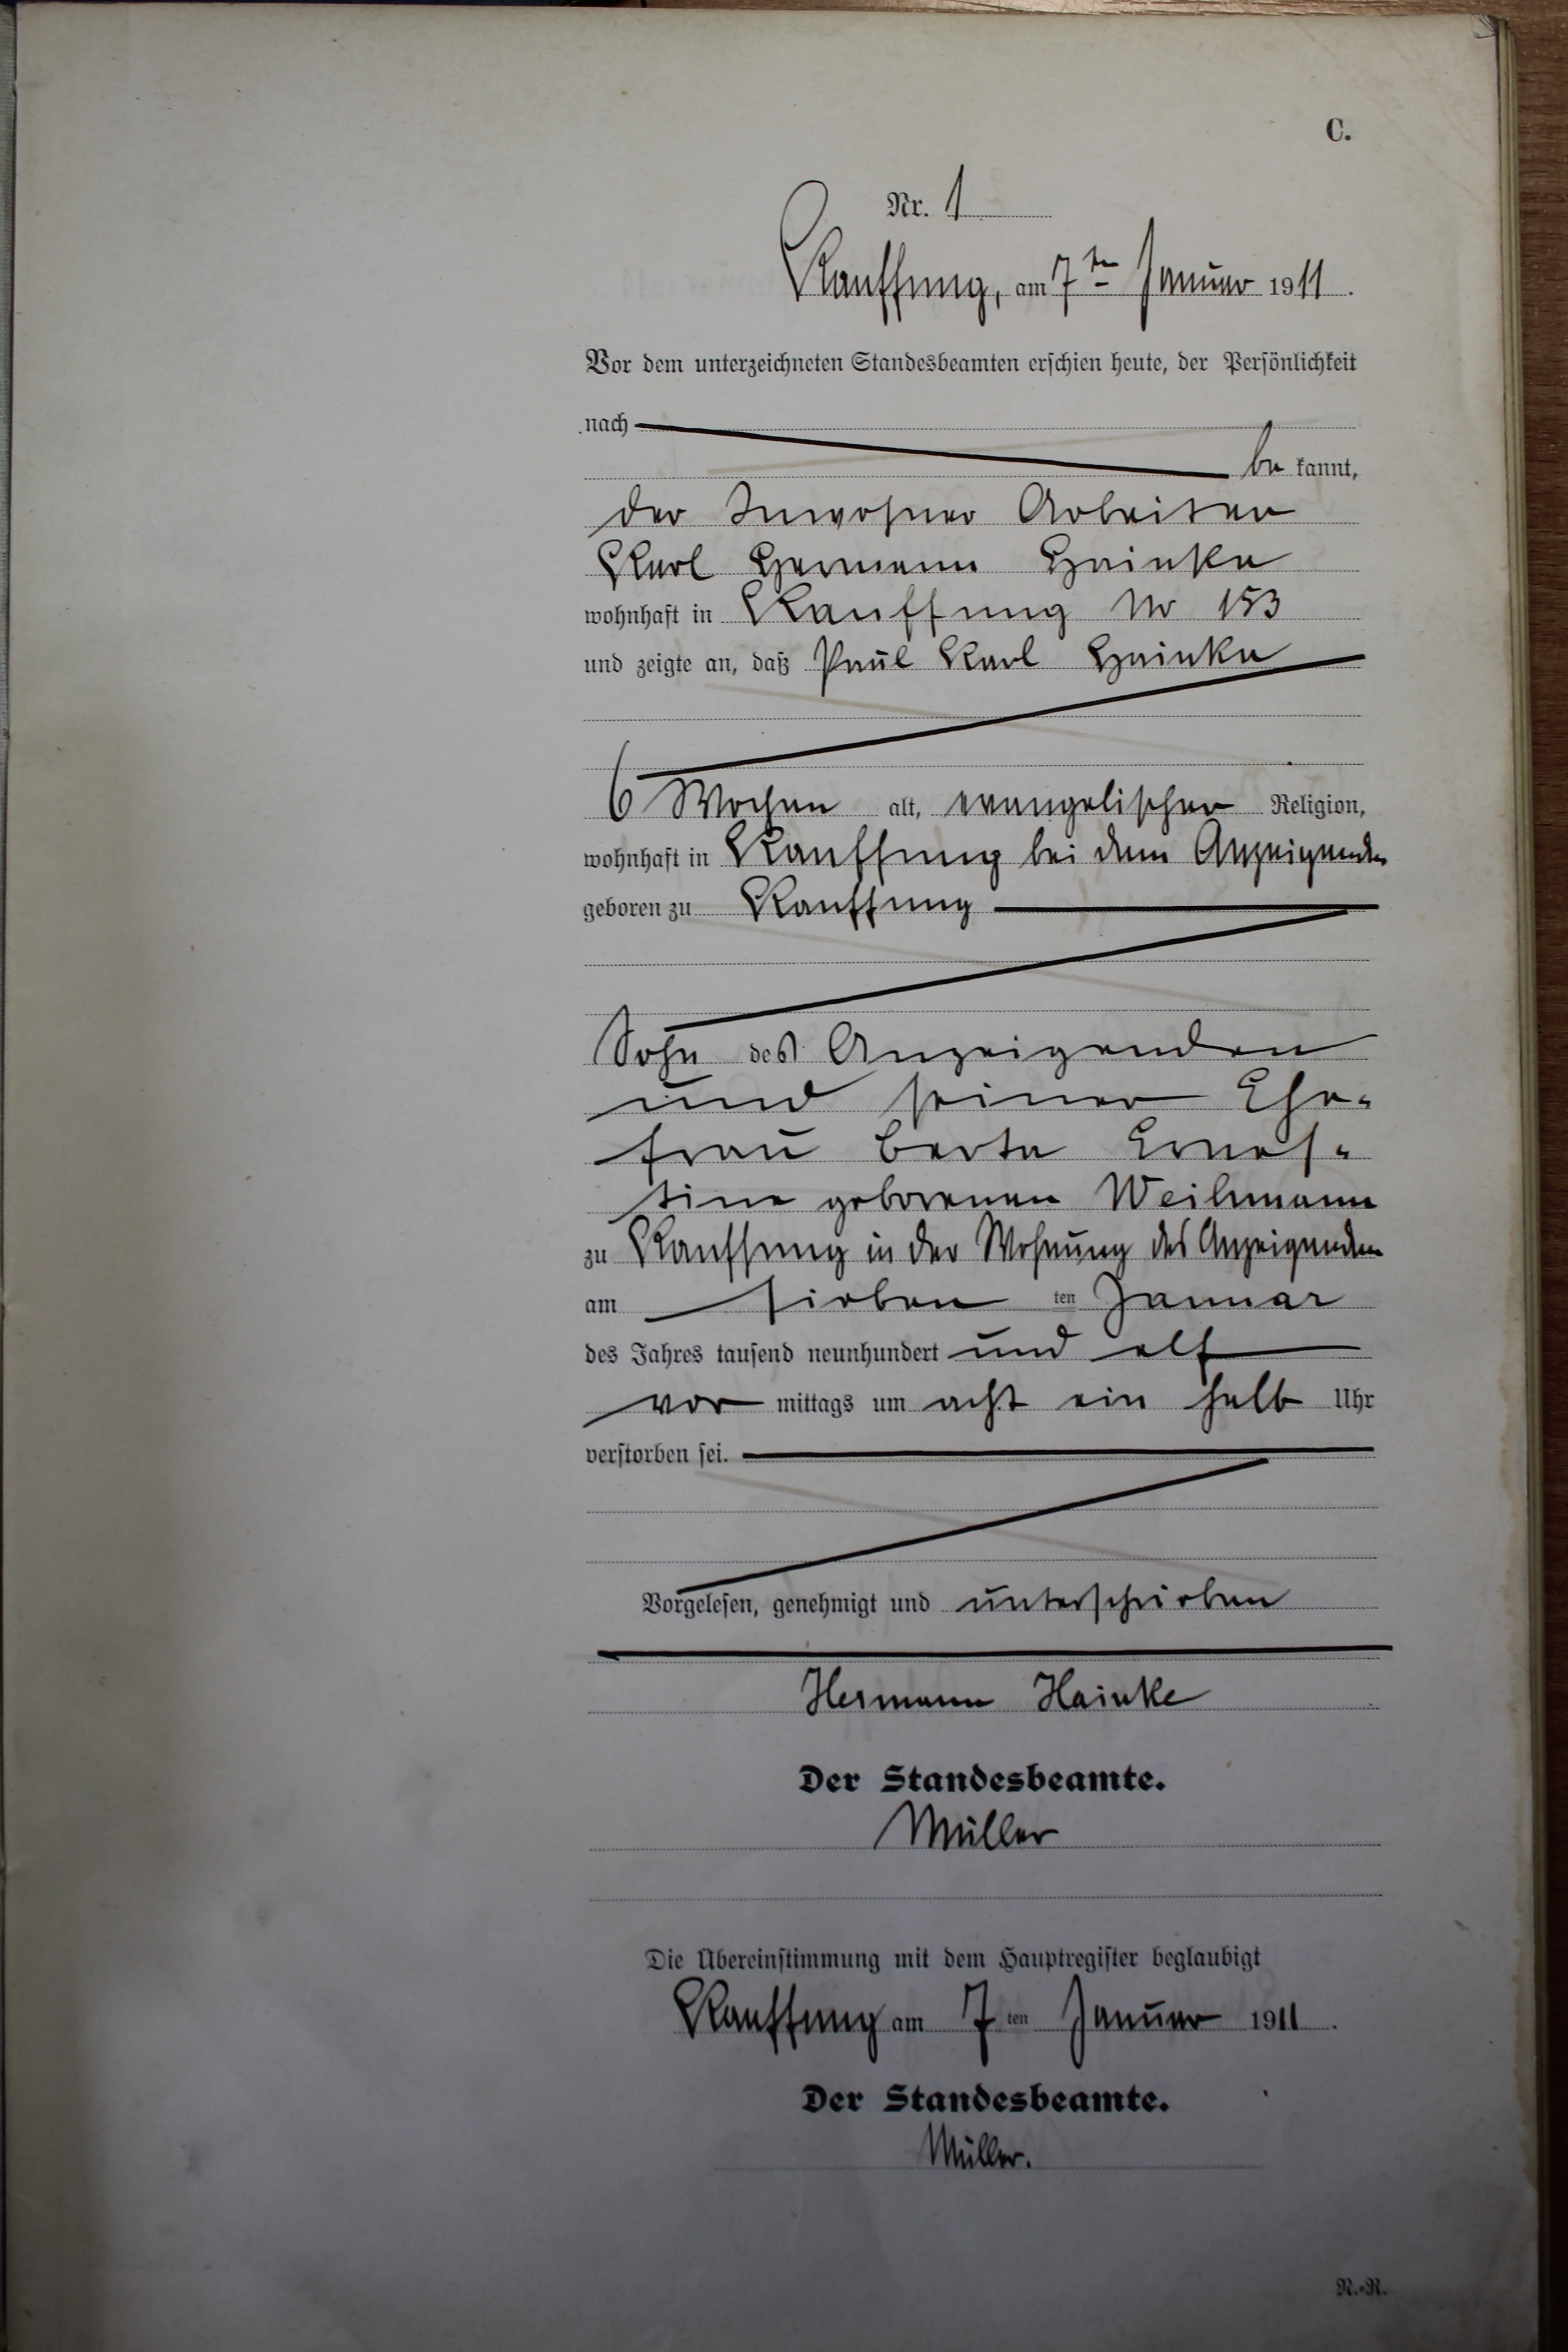 C.
Nr. 1
Kauffung, am 7ten Januar 1911.
Vor dem unterzeichneten Standesbeamten erschien heute, der Persönlichkeit
nach
be kannt,
der Inwohner Arbeiter
Karl Hermann Hainke
wohnhaft in Kauffung No 153
und zeigte an, daß Paul Karl Hainke
6 Wochen alt, evangelischer Religion,
wohnhaft in Kauffung bei dem Anzeigenden
geboren zu Kauffung
Sohn des Anzeigenden
und seiner Ehe-
frau Berta Ernes-
tine geborenen Weihmann
zu Kauffung in der Wohnung des Anzeigenden
am sieben ten Januar
des Jahres tausend neunhundert und elf
vor mittags um acht ein halb Uhr
verstorben sei.
Vorgelesen, genehmigt und unterschrieben
Hermann Hainke
Der Standesbeamte.
Müller
Die Übereinstimmung mit dem Hauptregister beglaubigt
Kauffung am 7 ten Januar 1911.
Der Standesbeamte.
Müller.
N.-R.